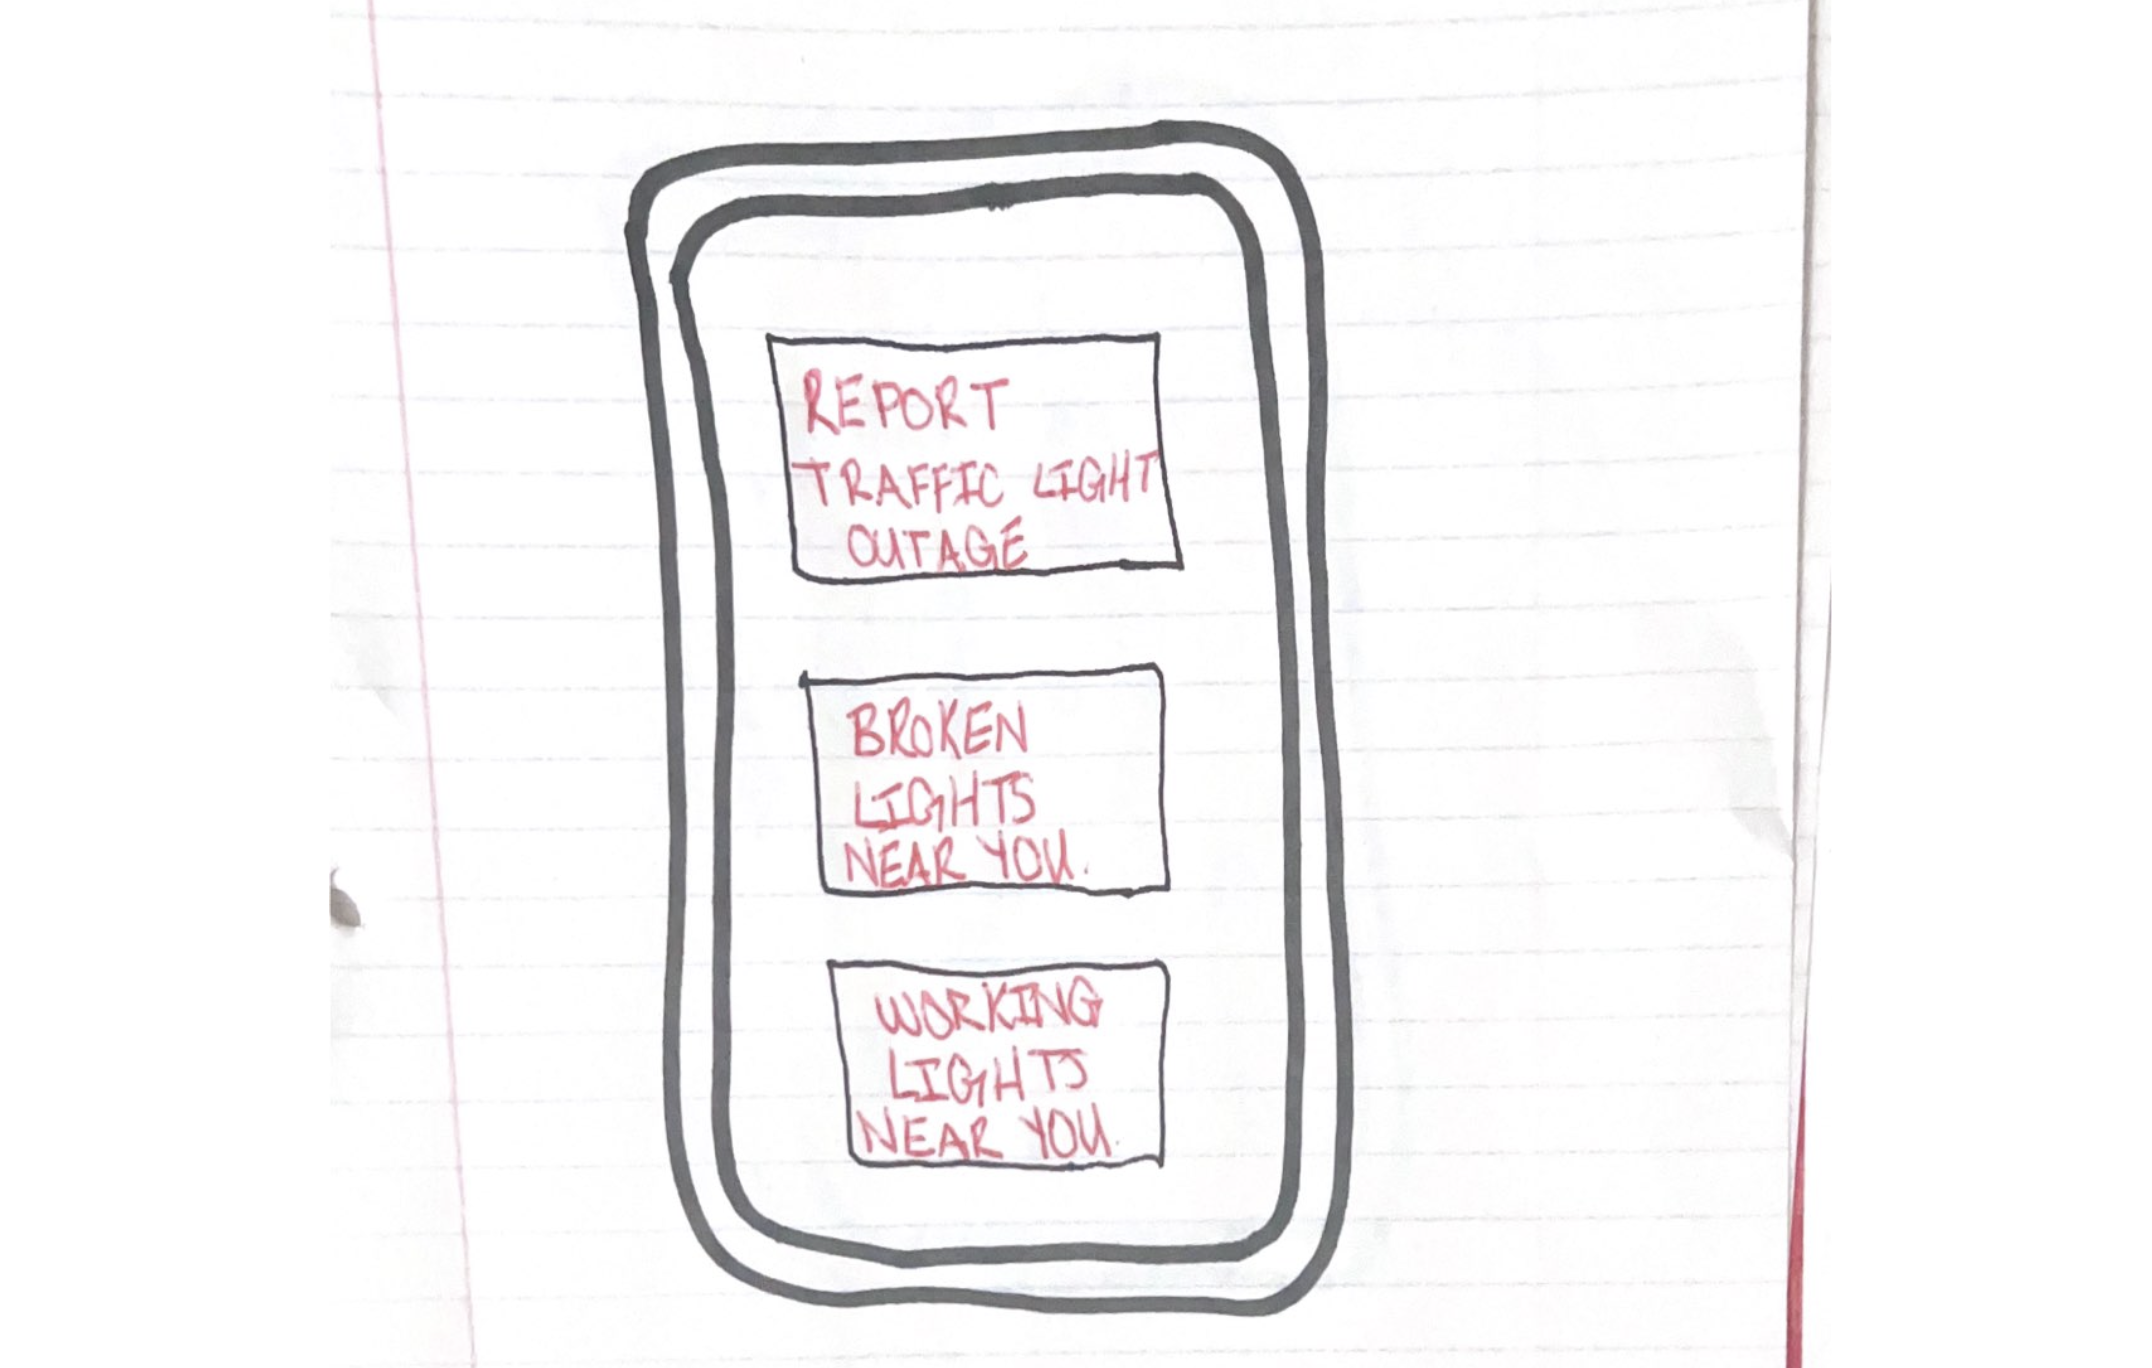 REPORT
TRAFFIC LIGHT
OUTAGE
BROKEN
LIGHTS
NEAR YOU.
WORKING
LIGHTS
NEAR YOU.